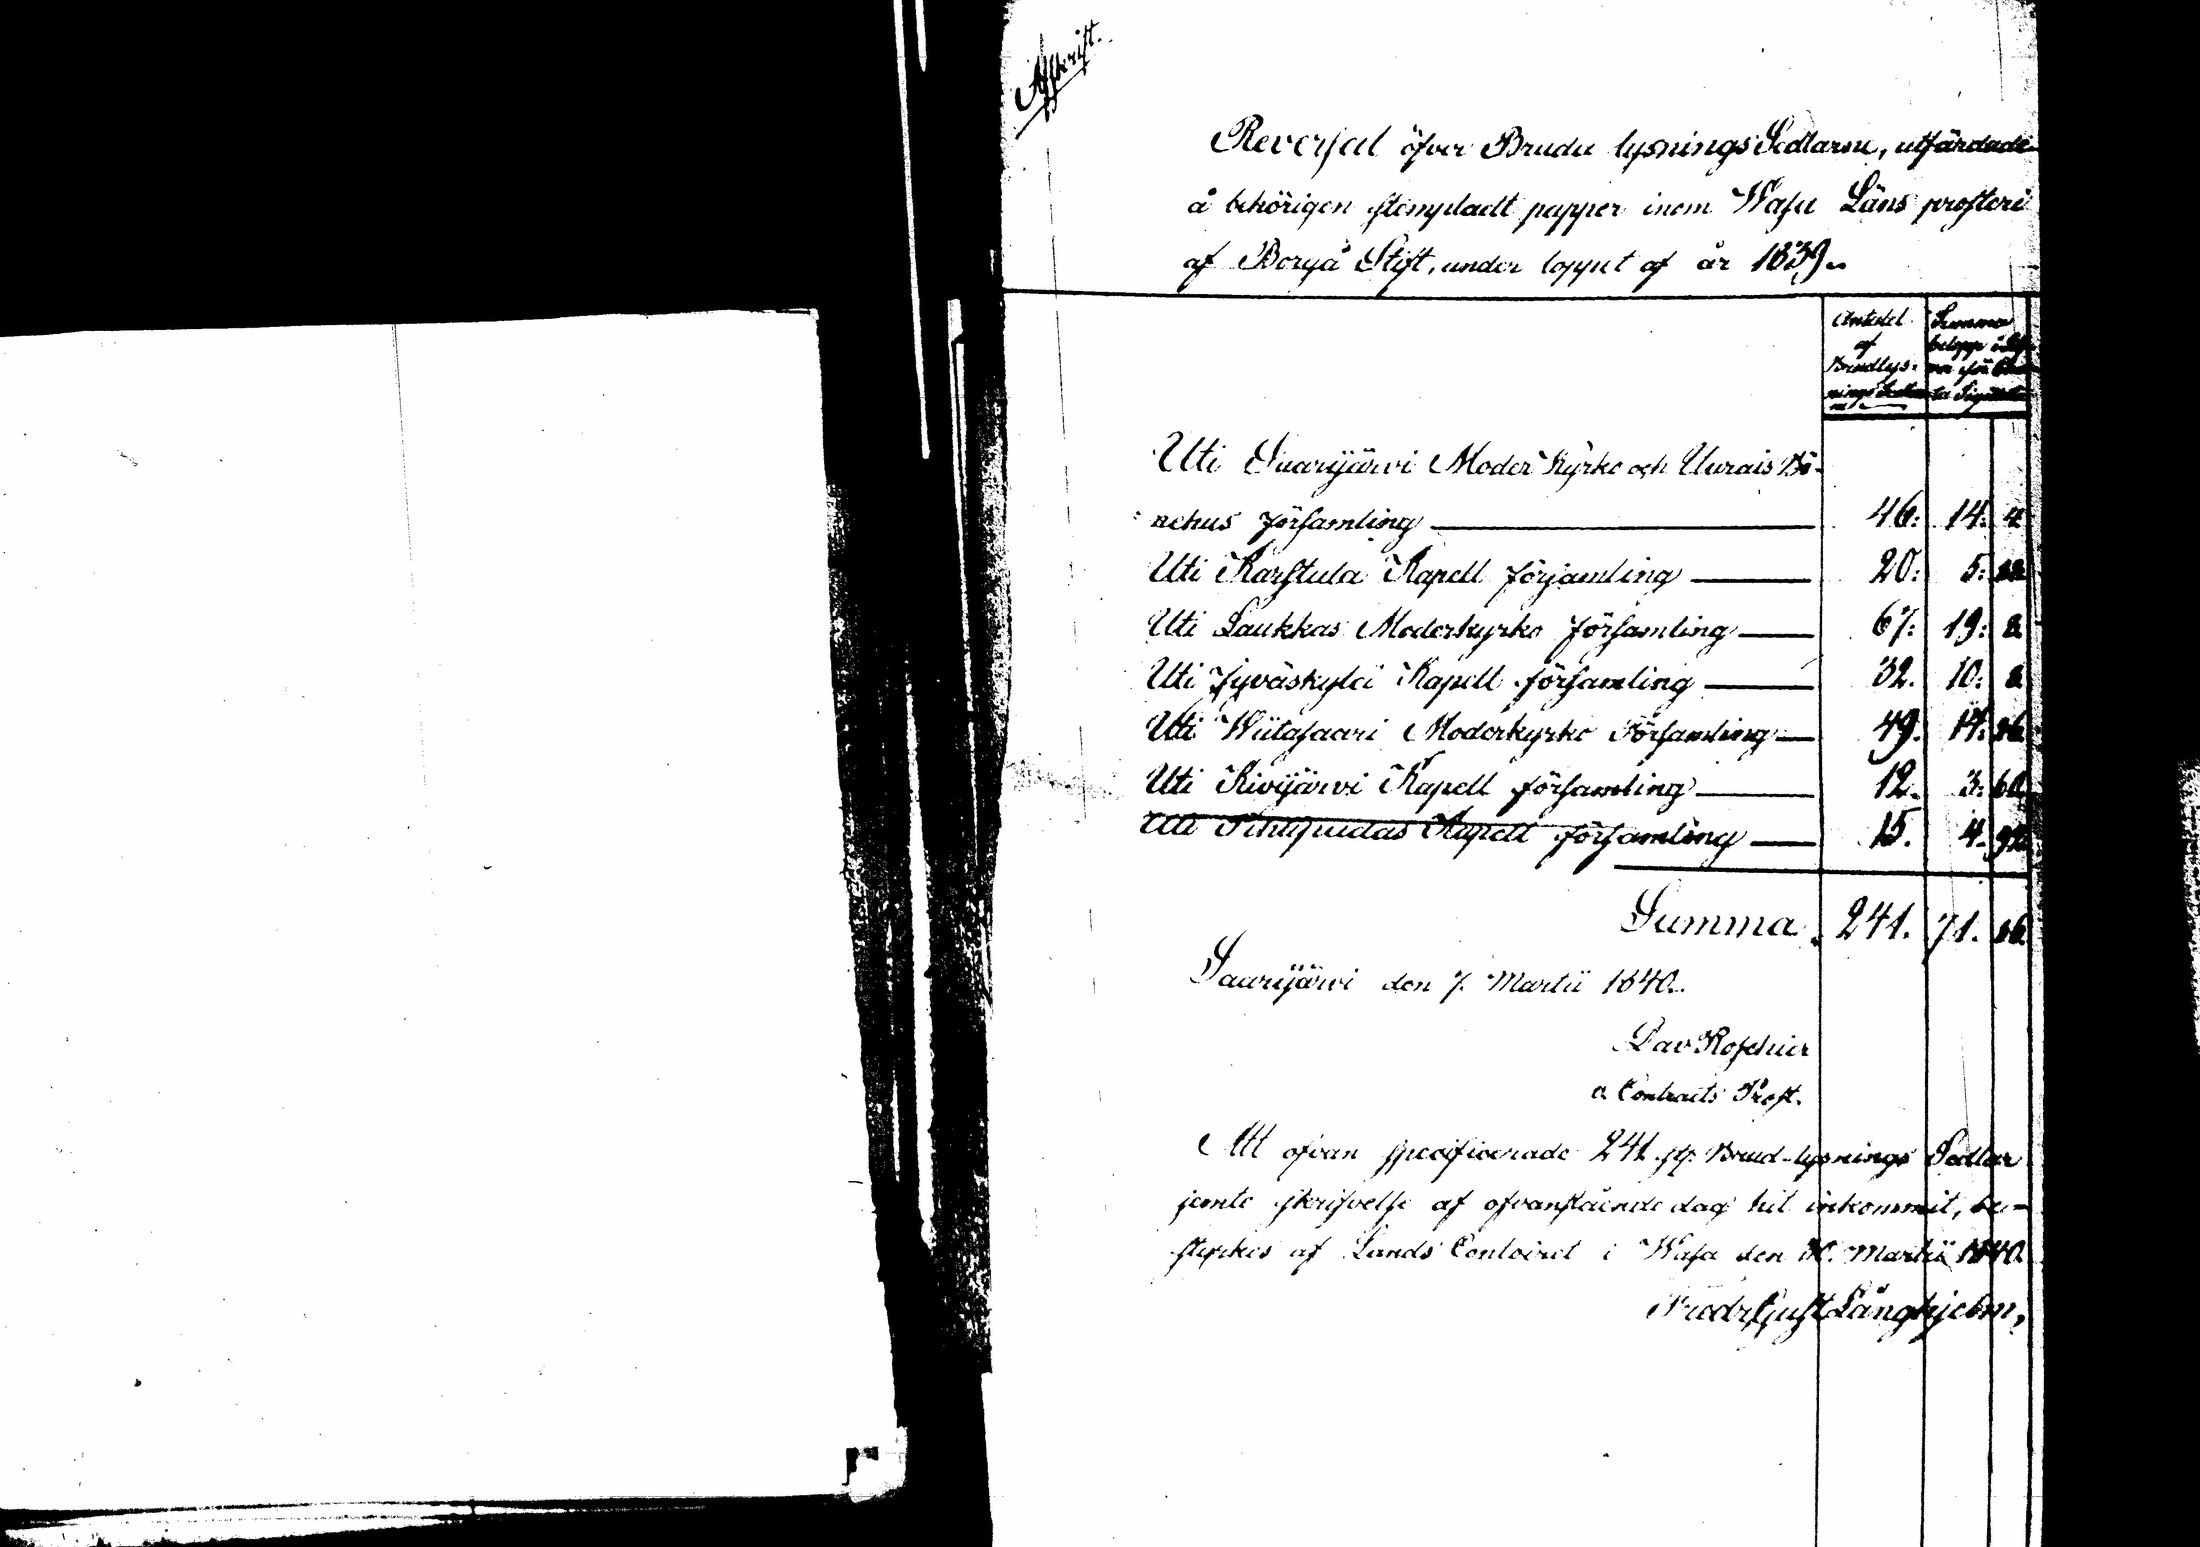 Afskrift.
Reversal öfver Brudu lysnings Sedlarne, utfärdade
å behörigen stempladt papper inom Wasa Läns prosteri
af Borgå Stift, under loppet af år 1839.
Antalet Summa
af belopp
Brudlys-
nings
Uti Saarijärvi Moder Kyrko och Uurais Bö-
nehus församling 46: 14: 4
Uti Karstula Kapell församling 20: 5:
Uti Laukkas Moderkyrko församling 67: 19: 8
Uti Jyväskylä Kapell församling 32. 10: 8
Uti Wiitasaari Moderkyrko församling 49. 14: 16
Uti Kivijärvi Kapell församling 12. 3: 60
Uti Pihtipudas Kapell församling 15. 4. 92
Summa 241. 71. 16
Saarijärvi den 7. Martii 1840.
Dav Roschier
C. Contracts Prost.
Att ofvan specificerade 241 st. Brud-lysnings Sedlar
jemte skrifvelse af ofvanstående dag hit inkommit, be-
styrkes af Lands Contoiret i Wasa den Martii 1840.
Fredr Gust Långhjelm,